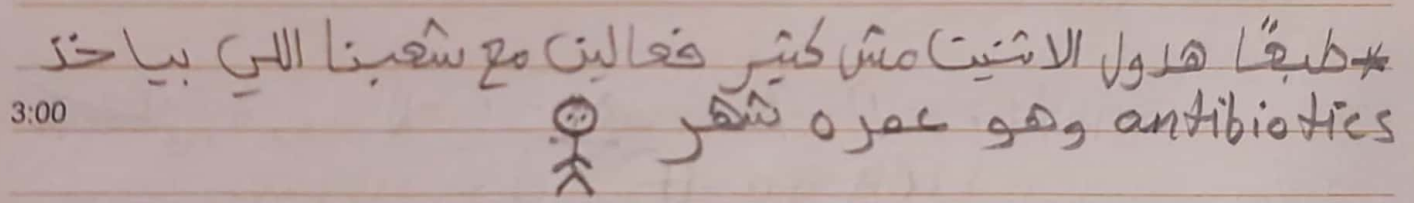 * طبعًا هدول الاثنين مش كثير فعالين مع شعبنا اللي بياخذ
antibiotics وهو عمره شهر
3:00